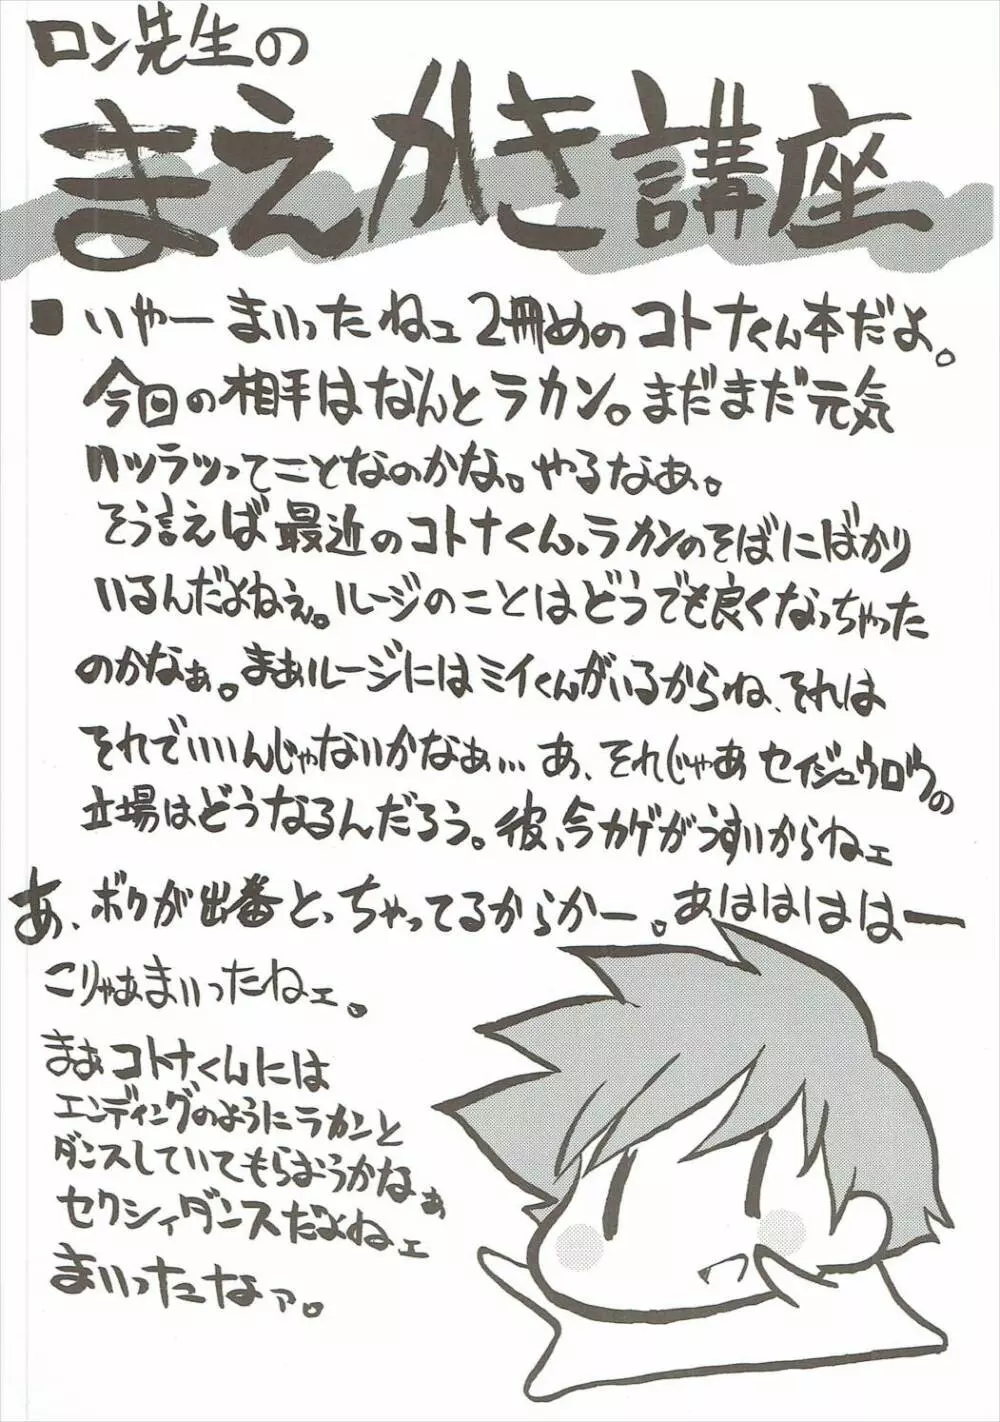 ロン先生の
まえがき講座
■いやー まいったねェ 2冊めの コトナくん本だよ。
今回の相手はなんとラカン。まだまだ元気
ハツラツってことなのかな。やるなぁ。
そう言えば最近のコトナくん、ラカンのそばにばかり
いるんだよねぇ。ルージのことはどうでも良くなっちゃった
のかなぁ。まぁルージにはミイくんがいるからね、それは
それでいいんじゃないかなぁ… あ、それじゃあセイジュウロウの
立場はどうなるんだろう。彼、今カゲがうすいからねェ
あ、ボクが出番とっちゃってるからかー。あはははは―
こりゃあまいったねェ。
まぁコトナくんには
エンディングのようにラカンと
ダンスしていてもらおうかなぁ
セクシィダンスだよねェ
まいったなァ。